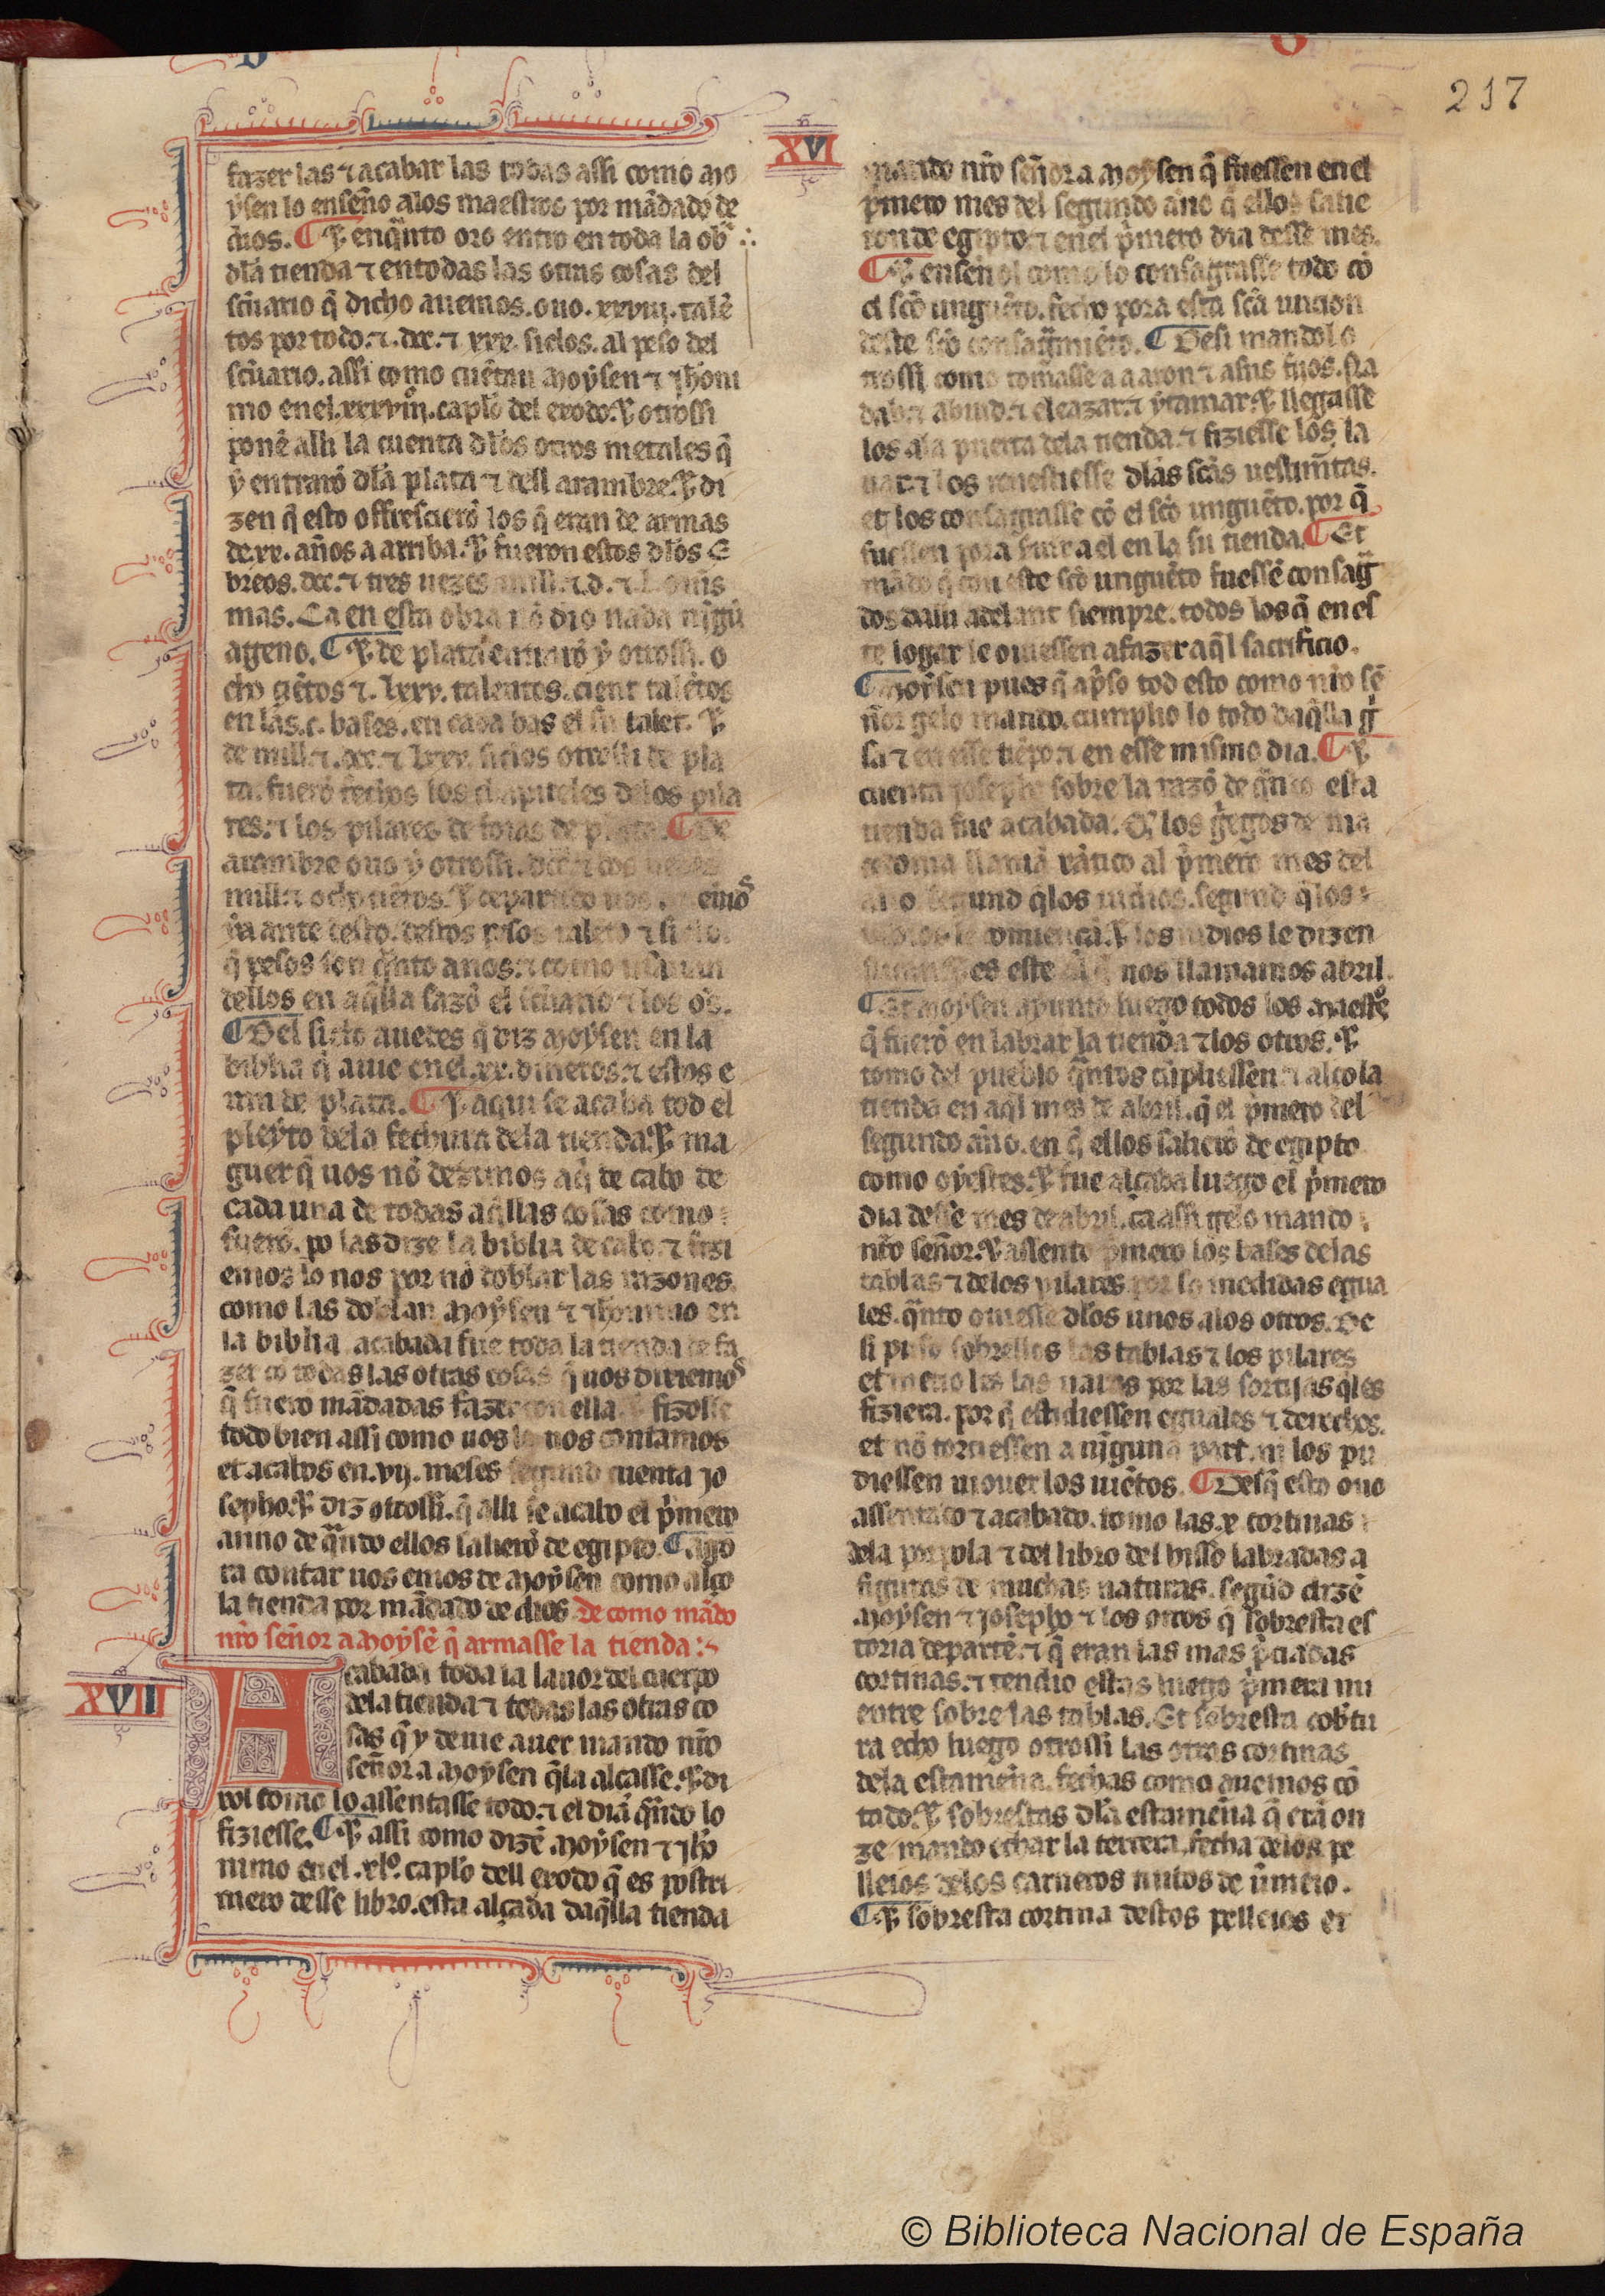 217
XVI
fazer las ⁊ acabar las todas assi como mo
ysen lo enseño alos maestros por mādado de
dios. ¶ ⁊ enq̃nto oro entro en toda la ob̃
dla tienda ⁊ en todas las otras cosas del
sc̃uario q̃ dicho auemos. ouo .xxviiij. talē
tos por todo. ⁊ .dcc. ⁊ xxx. siclos. al peso del
sc̃uario. assi como cuētan moysen ⁊ jhoni
mo en el .xxxviijº. caplo del exodo. ⁊ otrossi
ponē alli la cuenta dlos otros metales q̃
y entrarō dla plata ⁊ dell arambre. ⁊ di
zen q̃ esto offrescierō los q̃ eran de armas
de .xx. años a arriba. ⁊ fueron estos dlos e
breos. dcc. ⁊ tres uezes mill. ⁊ .d. ⁊ .l. om̃s
mas. Ca en esta obra nō dio nada nīgū
ageno. ¶ ⁊ de plata entrarō y otrossi. o
cho çiētos ⁊ .lxxv. talentos. cient talētos
en las .c. bases. en cada bas el su talēt. ⁊
de mill. ⁊ .dcc. ⁊ lxxv. siclos otrossi de pla
ta. fuerō fechos los chapiteles delos pila
res. ⁊ los pilares de foras de plata. ¶ De
arambre ouo y otrossi.
mill ⁊ ochociētos. ⁊ departido uos
ya ante desto. destos pesos talēto ⁊ siclo.
q̃ pesos son q̃nto a nos. ⁊ como
dellos en aq̃lla sazō el sc̃uario ⁊ los oēs.
¶ Del siclo auedes q̃ diz moysen en la
biblia q̃ auie en el .xx. dineros. ⁊ estos e
ran de plata. ¶ ⁊ aqui se acaba tod el
pleyto dela fechura dela tienda. ⁊ ma
guer q̃ uos nō dezimos aq̃ de cabo de
cada una de todas aq̃llas cosas como
fuerō. po las dize la biblia de cabo. ⁊ fizi
emos lo nos por nō doblar las razones.
como las doblan moysen ⁊ jheronimo en
la biblia. acabada fue toda la tienda de fa
zer cō todas las otras cosas q̃ uos dixiemoˢ
q̃ fuerō mādadas fazer con ella. ⁊ fizosse
todo bien assi como uos lo nos contamos
et acabos en .vij. meses segund cuenta jo
sepho. ⁊ diz otrossi. q̃ alli se acabo el p̃mero
anno de q̃ndo ellos salierō de egipto. ¶ Ago
ra contar uos emos de moysen como alço
la tienda por mādado de dios. De como mādo
nr̃o señor a moysē q̃ armasse la tienda
XVII
Acabada toda la lauor del cuerpo
dela tienda ⁊ todas las otras co
sas q̃ y deuie auer mando nr̃o
señor a moysen q̃la alçasse. ⁊ di
xol como lo assentasse todo. ⁊ el dia q̃ndo lo
fiziesse. ¶ ⁊ assi como dizē moysen ⁊ jhō
nimo en el .xlº. caplo dell exodo q̃ es postri
mero desse libro. esta alçada daq̃lla tienda
mando nr̃o señor a moysen q̃ fuessen en el
p̃mero mes del segundo año q̃ ellos salie
ron de egipto. ⁊ en el p̃mero dia desse mes.
¶ ⁊ enseñol como lo consagrasse todo cō
el scō unguēto. fecho pora esta scā uncion
deste scō consag̃miēto. ¶ Desi mandol o
trossi como tomasse a aaron ⁊ a sus fijos. na
dab. ⁊ abiud. ⁊ eleazar. ⁊ ytamar. ⁊ llegasse
los ala puerta dela tienda. ⁊ fiziesse los la
uar. ⁊ los reuestiesse dlas scās uestim̃tas.
et los consagrasse cō el scō unguēto. por q̃
fuessen pora seruir a el en la su tienda. ¶ Et
mādo q̃ con este scō unguēto fuessē consag̃
dos dalli adelant siempre. todos los q̃ en es
te logar le ouiessen a fazer aq̃l sacrificio.
¶ Moysen pues q̃ ap̃so tod esto como nr̃o sē
ñor gelo mando. cumplio lo todo daq̃lla g̃
sa ⁊ en esse tiēpo. ⁊ en esse mismo dia. ¶ ⁊
cuenta josepho sobre la razō de q̃ndo esta
tienda fue acabada. Q̃ los g̃egos de ma
cedonia llamā xātico al p̃mero mes del
año segund q̃los judios. segund q̃los
comiençā. ⁊ los judios le dizen
es este al q̃ nos llamamos abril.
¶ Et moysen ayunto luego todos los maestrͦs
q̃ fuerō en labrar la tienda ⁊ los otros. ⁊
tomo del pueblo q̃ntos cūpliessen. ⁊ alço la
tienda en aq̃l mes de abril. q̃ el p̃mero del
segundo año. en q̃ ellos salierō de egipto
como oyestes. ⁊ fue alçada luego el p̃mero
dia desse mes de abril. ca assi gelo mando
nr̃o señor. ⁊ assento p̃mero los bases delas
tablas ⁊ delos pilares por so medidas egua
les. q̃nto ouiesse dlos unos alos otros. De
si puso sobrellos las tablas ⁊ los pilares
et metio les las uaras por las sortijas q̃les
fiziera. por q̃ estudiessen eguales ⁊ derechos.
et nō torciessen a nīguna part. ni los pu
diessen mouer los uiētos. ¶ Desq̃ esto ouo
assentado ⁊ acabado. tomo las .x. cortinas
dela porpola ⁊ del libro del bisso labradas a
figuras de muchas naturas. segūd dizē
moysen ⁊ josepho ⁊ los otros q̃ sobresta es
toria departē. ⁊ q̃ eran las mas p̃ciadas
cortinas. ⁊ tendio estas luego p̃mera mi
entre sobre las tablas. Et sobresta cob̃tu
ra echo luego otrossi las otras cortinas
dela estameña. fechas como auemos cō
tado. ⁊ sobrestas dla estameña q̃ erā on
ze mando echar la tercera. fecha delos pe
lleios delos carneros tintos de ũmeio.
¶ ⁊ sobresta cortina destos pelleios et
© Biblioteca Nacional de España